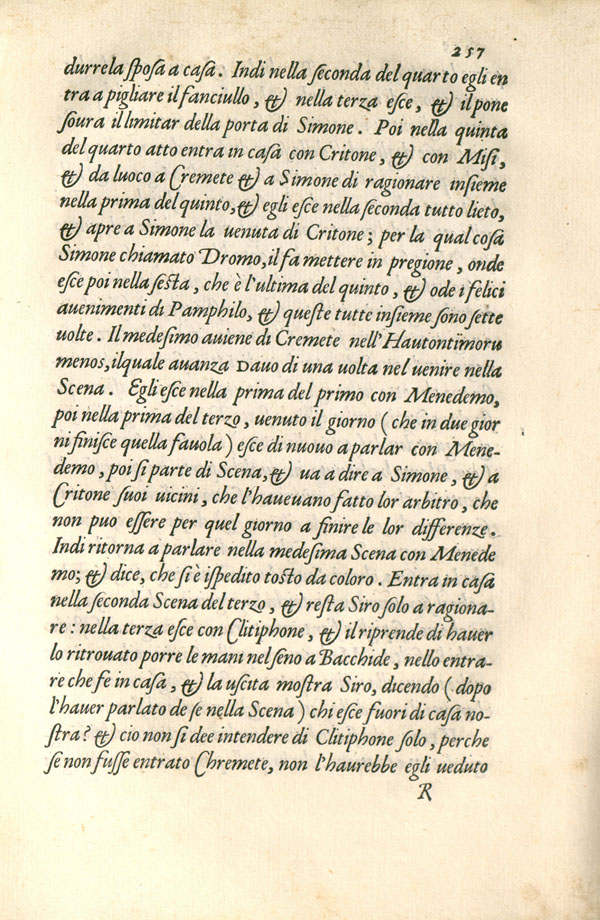 257
durrela sposa a casa. Indi nella seconda del quarto egli en
tra a pigliare il fanciullo, & nella terza esce, & il pone
soura il limitar della porta di Simone. Poi nella quinta
del quarto atto entra in casa con Critone, & con Misi,
& da luoco a Cremete & a Simone di ragionare insieme
nella prima del quinto, & egli esce nella seconda tutto lieto,
& apre a Simone la uenuta di Critone; per la qual cosa
Simone chiamato Dromo, il fa mettere in pregione, onde
esce poi nella sesta, che è l'ultima del quinto, & ode i felici
auenimenti di Pamphilo, & queste tutte insieme sono sette
uolte. Il medesimo auiene di Cremete nell'Hautontimoru
menos, ilquale auanza Dauo di una uolta nel uenire nella
Scena. Egli esce nella prima del primo con Menedemo,
poi nella prima del terzo, uenuto il giorno (che in due gior
ni finisce quella fauola) esce di nuouo a parlar con Mene-
demo, poi si parte di Scena, & ua a dire a Simone, & a
Critone suoi uicini, che l'haueuano fatto lor arbitro, che
non puo essere per quel giorno a finire le lor differenze.
Indi ritorna a parlare nella medesima Scena con Menede
mo; & dice, che si è ispedito tosto da coloro. Entra in casa
nella seconda Scena del terzo, & resta Siro solo a ragiona-
re: nella terza esce con Clitiphone, & il riprende di hauer
lo ritrouato porre le mani nel seno a Bacchide, nello entra-
re che fe in casa, & la uscita mostra Siro, dicendo (dopo
l'hauer parlato de se nella Scena) chi esce fuori di casa no-
stra? & cio non si dee intendere di Clitiphone solo, perche
se non fusse entrato Chremete, non l'haurebbe egli ueduto
R